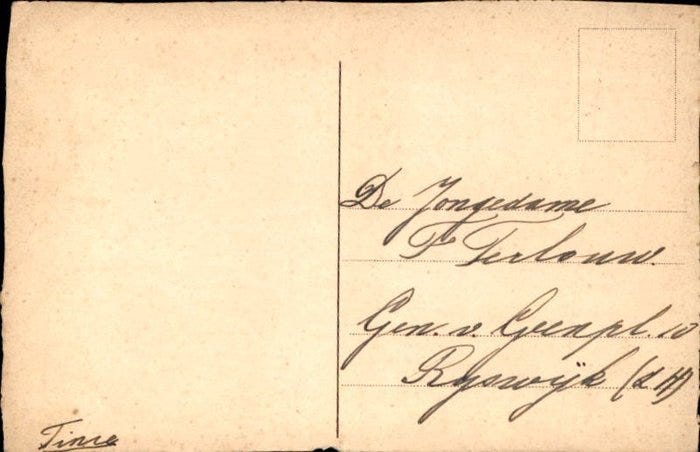 De Jongedame
F Terlouw.
Gen. v. Geenpl. 10
Ryswijk (d H)
Tinie